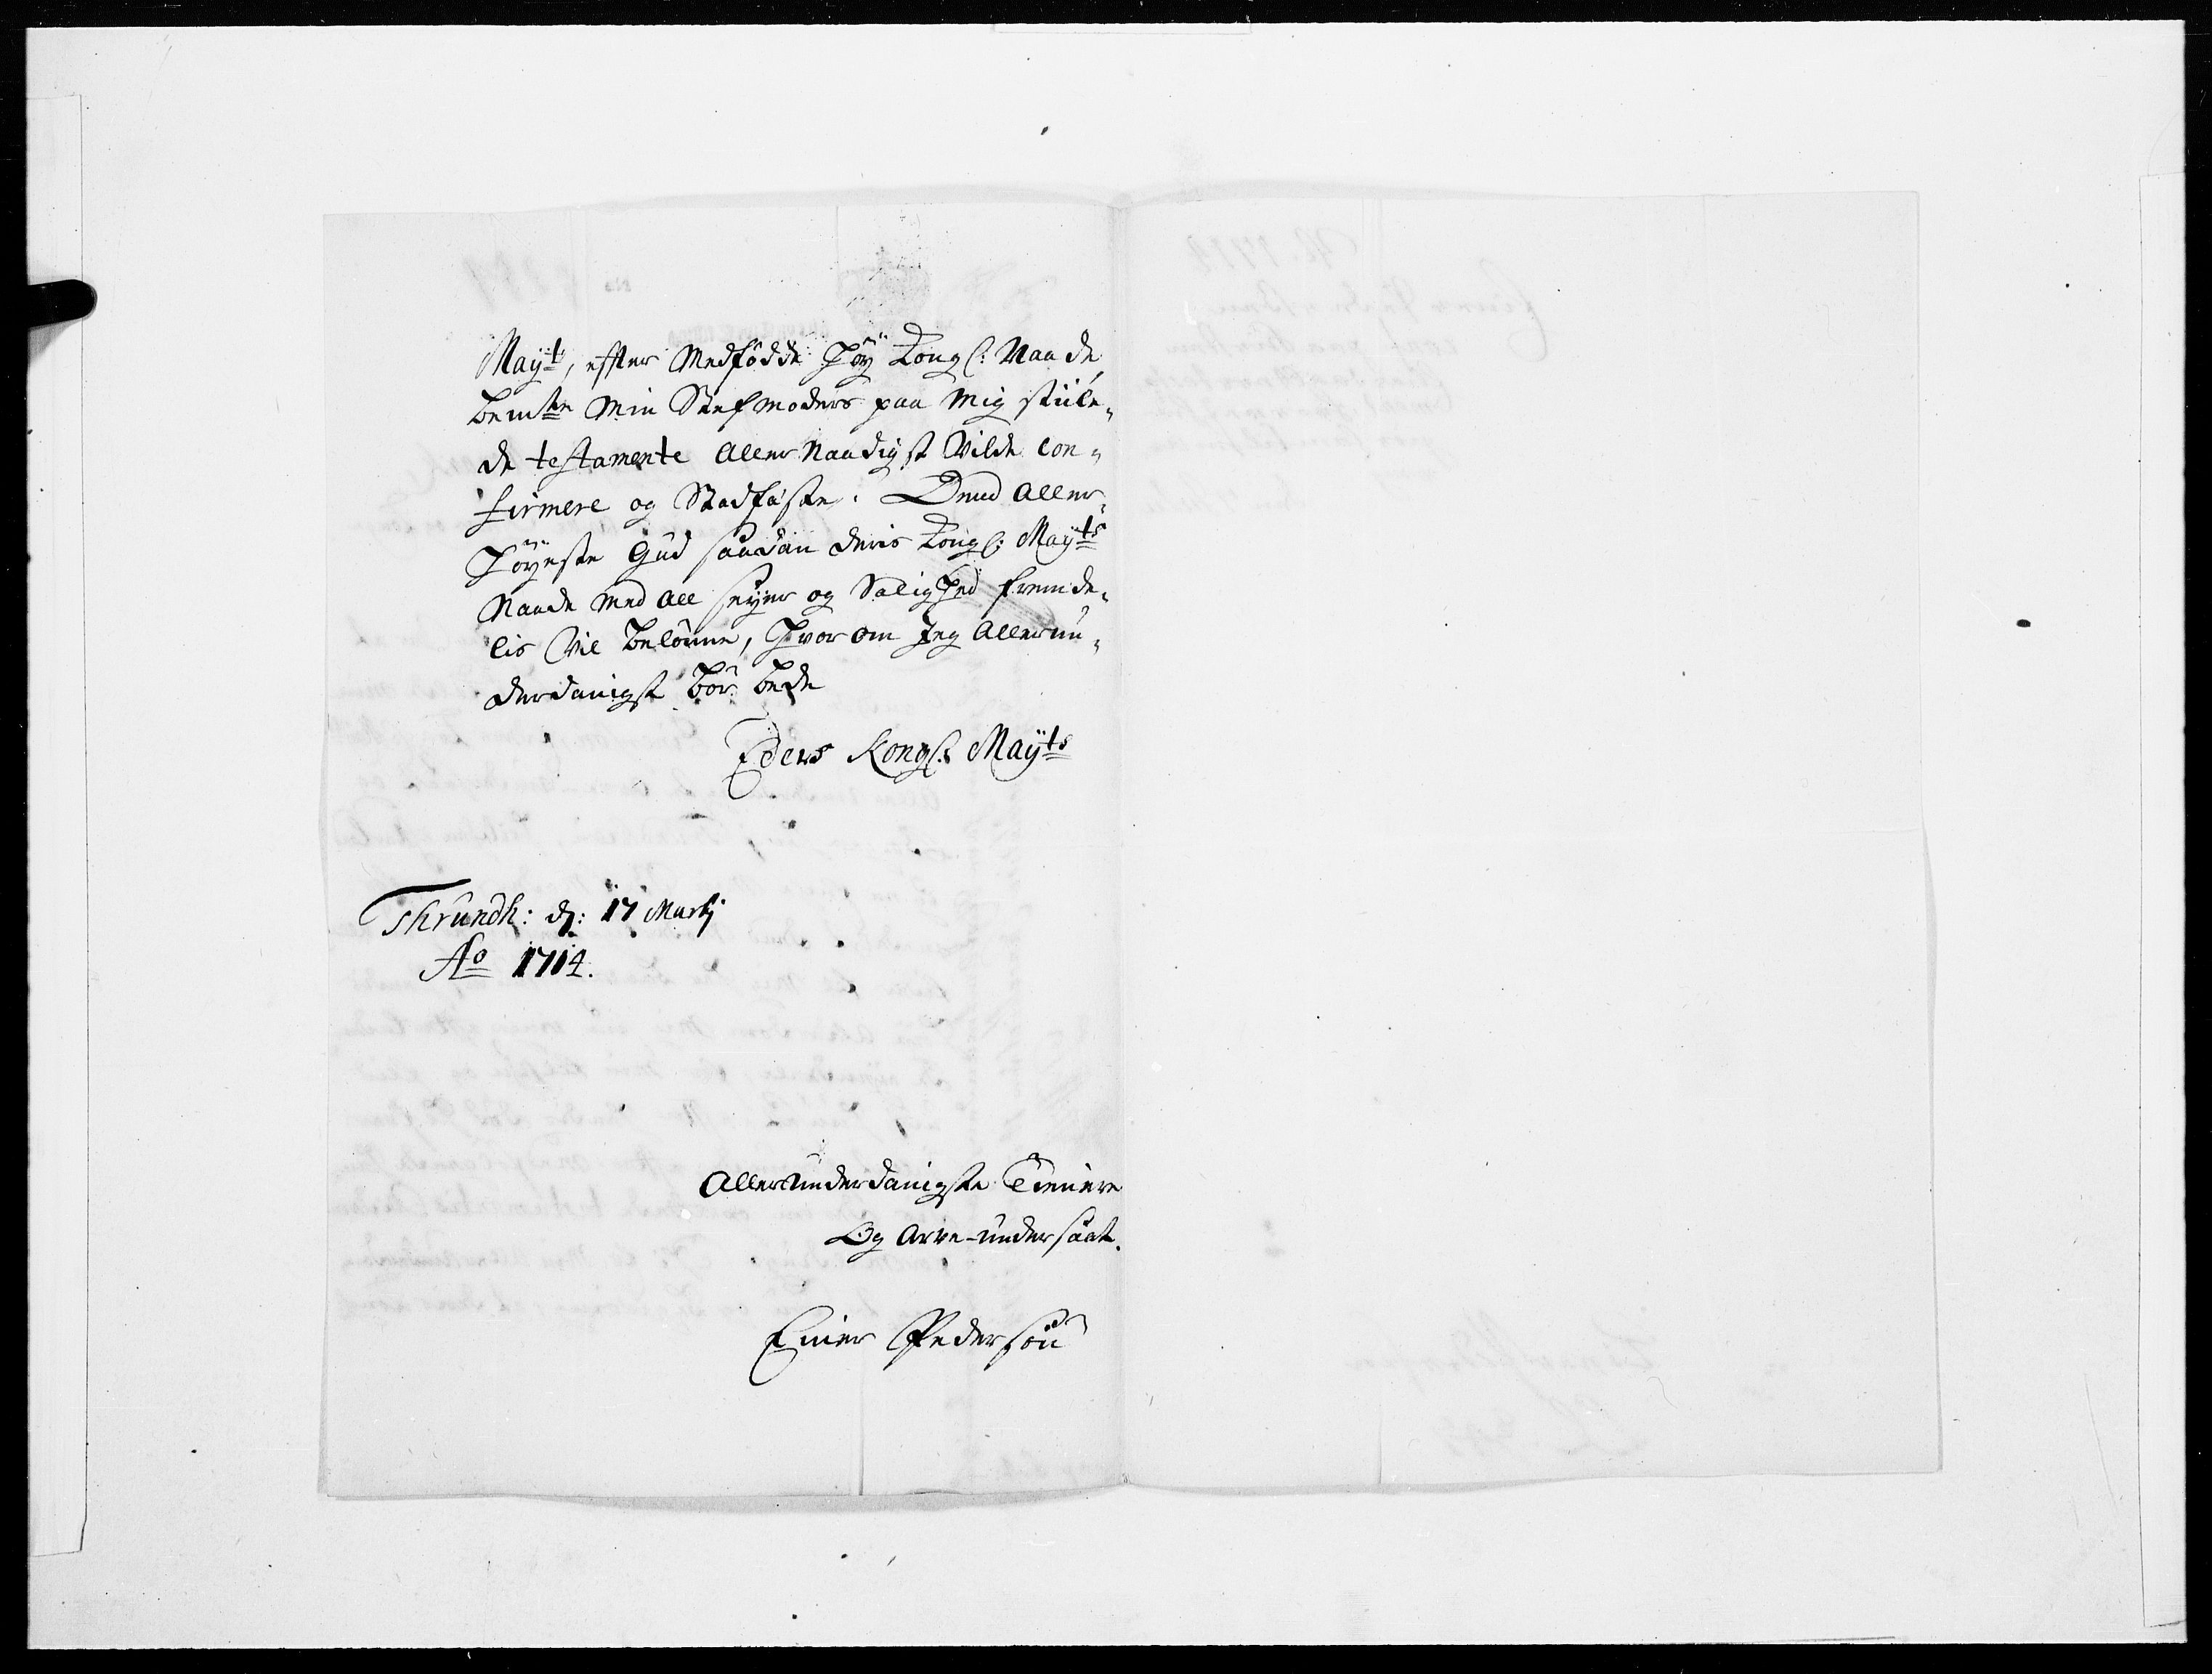 Mayt, effter Medfødde Høy Kongl: Naade,
bemte min Stefmoders paa mig stiile,,
de testamente Aller Naadigst Vilde Con,,
firmere og Stadfæste. Dend Aller,,
Høyeste Gud saadan deris Kongl: Mayts
Naade med all seyer og Salighed fremde,,
lis Vil belønne, hvor om Jeg Allerun,,
derdanigst bør bede
Eders Kongl: Mayts
Thrundh: dj: 17 Martj
Ao 1714.
Allerunderdanigste Tienere
Og Arve-undersaat.
Einer Pedersøn